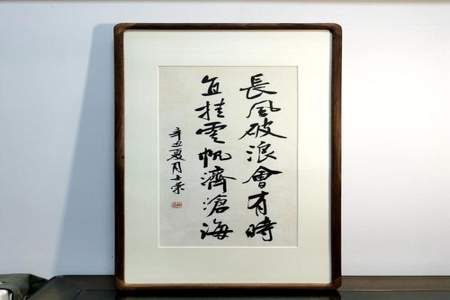 長風破浪會有時
直挂雲帆濟滄海
辛丑夏月士榮